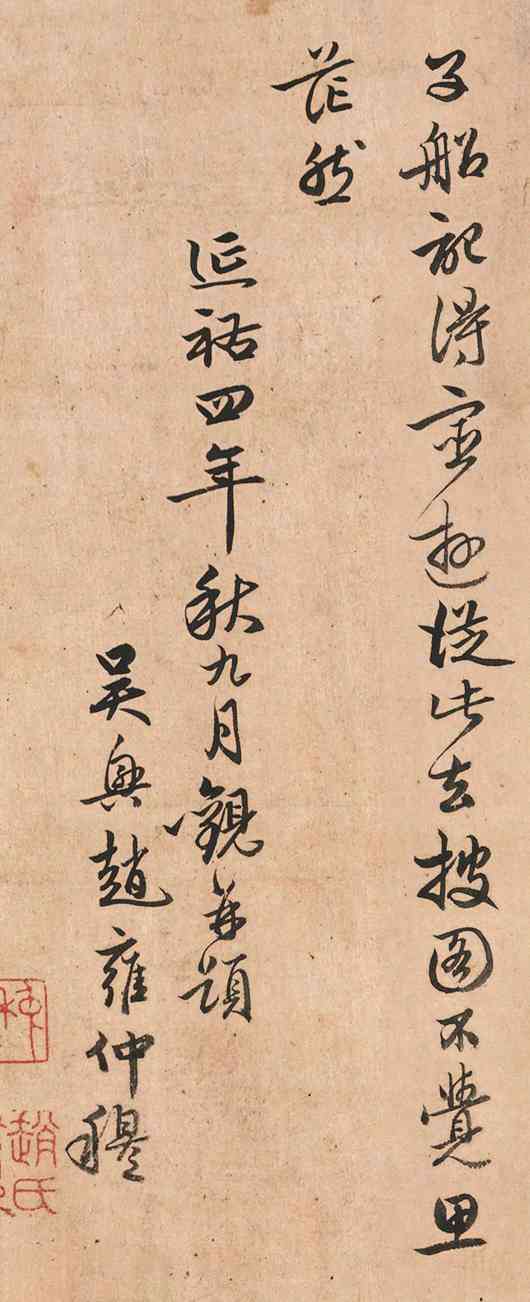 子船記得宦遊從此去披圖不覺思
茫然
延祐四年秋九月觀并題
吳興趙雍仲穆
趙氏